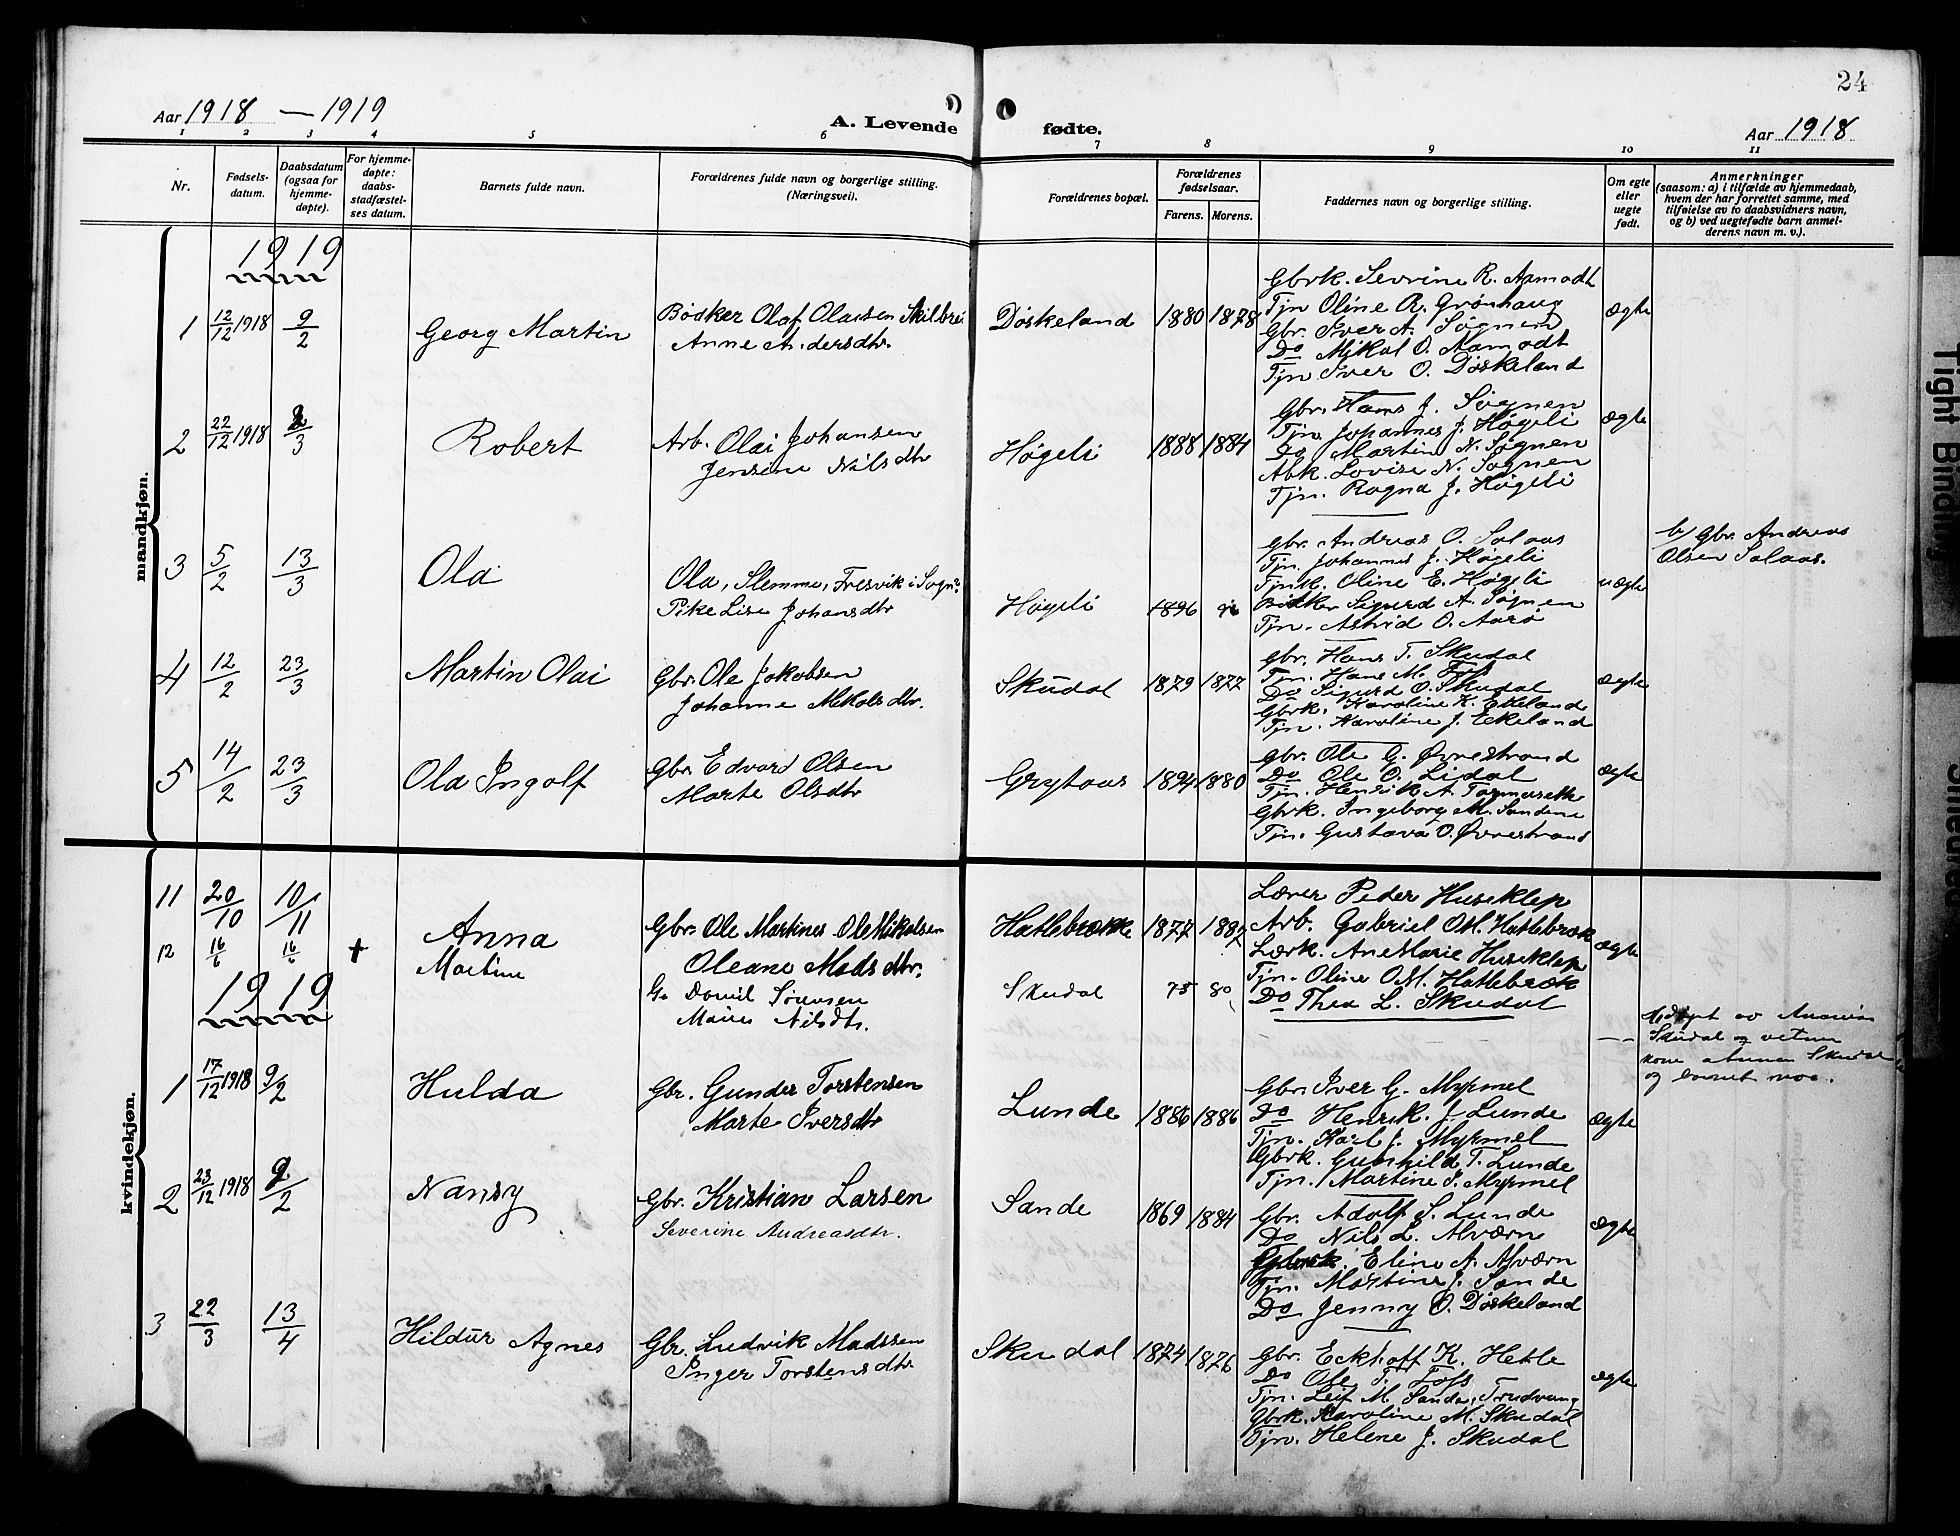 24
Aar 1918 — 1919
A. Levende fødte.
Aar 1918
1 2 3 4 5 6 7 8 9 10 11
Nr.
Fødsels-
datum.
Daabsdatum
(ogsaa for
hjemme-
døpte).
For hjemme-
døpte:
daabs-
stadfæstel-
ses datum.
Barnets fulde navn.
Forældrenes fulde navn og borgerlige stilling.
(Næringsvei).
Forældrenes bopæl.
Forældrenes
fødselsaar.
Farens. Morens.
Faddernes navn og borgerlige stilling.
Om egte
eller
uegte
født.
Anmerkninger
(saasom: a) i tilfælde av hjemmedaab,
hvem der har forrettet samme, med
tilføielse av to daabsvidners navn,
og b) ved uegtefødte barn anmel-
derens navn m. v.).
mandkjøn.
1919
1 12/12 1918 9/2 Georg Martin
Bødker Olaf Olaisen Skilbrei
Anne Andersdtr.
Døskeland 1880 1878
Gbrk. Sevrine R. Aamodt
Tjn Oline R. Grønhaug
Gbr. Iver A. Søgnen
Do Mikal O. Aamodt
Tjn Iver O. Døskeland
ægte
2 22/12 1918 /3 Robert
Arb. Olai Johansen
Jensine Nilsdtr
Høgeli 1888 1884
Gbr. Hans J. Søgnen
Tjn. Johannes J. Høgeli
Do Martin N. Søgnen
Abk. Lovise N. Søgnen
Tjn. Ragna J. Høgeli
ægte
3 5/2 13/3 Ola
Ola, Slemme, Fresvik i Sogn.
Pike Lise Johansdtr
Høgeli 1896 96
Gbr. Andreas O. Solaas
Tjn. Johannes J. Høgeli
Tjn. Oline E. Høgeli
Bødker Sigurd A. Søgnen
Tjn. Astrid O. Aarø
uægte
b/ Gbr. Andreas
Olsen Solaas.
4 12/2 23/3 Martin Olai
Gbr. Ole Jakobsen
Johanne Mikalsdtr.
Skudal 1879 1877
Gbr. Hans T. Skudal
Tjn. Hans M. Fos
Do Sigurd O. Skudal
Gbrk. Karoline K. Ekeland
Tjn. Karoline J. Eekeland
ægte
5 14/2 23/3 Ola Ingolf
Gbr. Edvard Olsen
Marte Olsdtr
Grytaas 1894 1880
Gbr. Ole G. Øvrestrand
Do Ole O. Lidal
Tjn. Henrik A.
Gbrk. Ingeborg M. Sandene
Tjn. Gustava O. Øvrestrand
ægte
kvindekjøn.
11 20/10 10/11 Anna
Gbr. Ole Martines Ole Mikalsen
Oleane Madsdtr.
Hatlebrække 1877 1882
Lærer Peder Huseklep
Arb. Gabriel O.M. Hatlebræk
Lærk. Ane Marie Huseklep
Tjn. Oline O.M. Hatlebræk
Do Thea L. Skudal
ægte
12 16/6 16/6 + Martine
G. Daniel Sørensen
Nilsdtr.
Skudal 75 80
— —
Hdøpt av
Skudal og
kone Skudal
og
1919
1 17/12 1918 9/2 Hulda
Gbr. Gunder Torstensen
Marte Iversdtr
Lunde 1886 1886
Gbr. Iver G. Myrmel
Do Henrik. J. Lunde
Tjn. Karl J. Myrmel
Gbrk. Gunhild T. Lunde
Tjn. Martine J. Myrmel
ægte
2 23/12 1918 9/2 Nansy
Gbr. Kristian Larsen
Severine Andreasdtr.
Sande 1869 1884
Gbr. Adolf S. Lunde
Do Nils L. Alværn
Gbrk. Eline A. Alværn
Tjn. Martine J. Sande
Do Jenny O. Døskeland
ægte
3 22/3 13/4 Hildur Agnes
Gbr. Ludvik Madssen
Inger Torstensdtr
Skudal 1874 1876
Gbr. Eckhoff K. Hetle
Do Ole T. Fos
Tjn. Leif M. Sande, Trudvang
Gbrk. Karoline M. Skudal
Tjn. Helene J. Skudal
ægte
Tight Binding